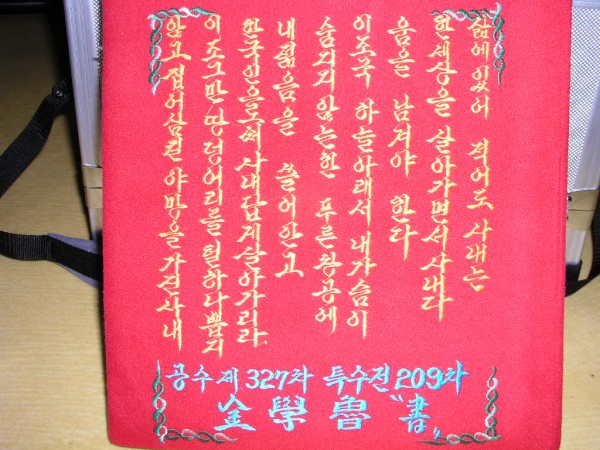 삶에있어 적어도 사내는
한세상을 살아가면서사내다
움을 남겨야 한다
이조국 하늘아래서 내가슴이
숨지지 않는한 푸른창공에
내젊음을 쓸어안고
사내답게살아가리라
이 조그만 땅덩어리를 털하나뽑지
않고 집어삼킬 야망을 가진사내
공수 제327차 특수전 209차
金 學 魯 "書"